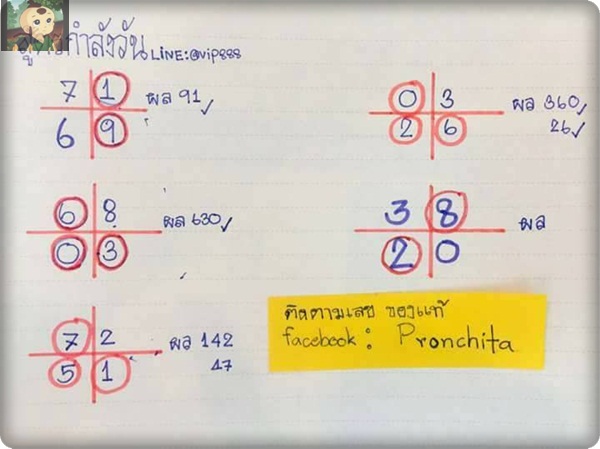 กำลังวัน LINE:@vip888
7 1
6 9
ผล 91
6 8
0 3
ผล 630
7 2
5 1
ผล 142
47
0 3
2 6
ผล 360
26
3 8
2 0
ผล
ติดตามเลข ของแท้
facebook : Pronchita